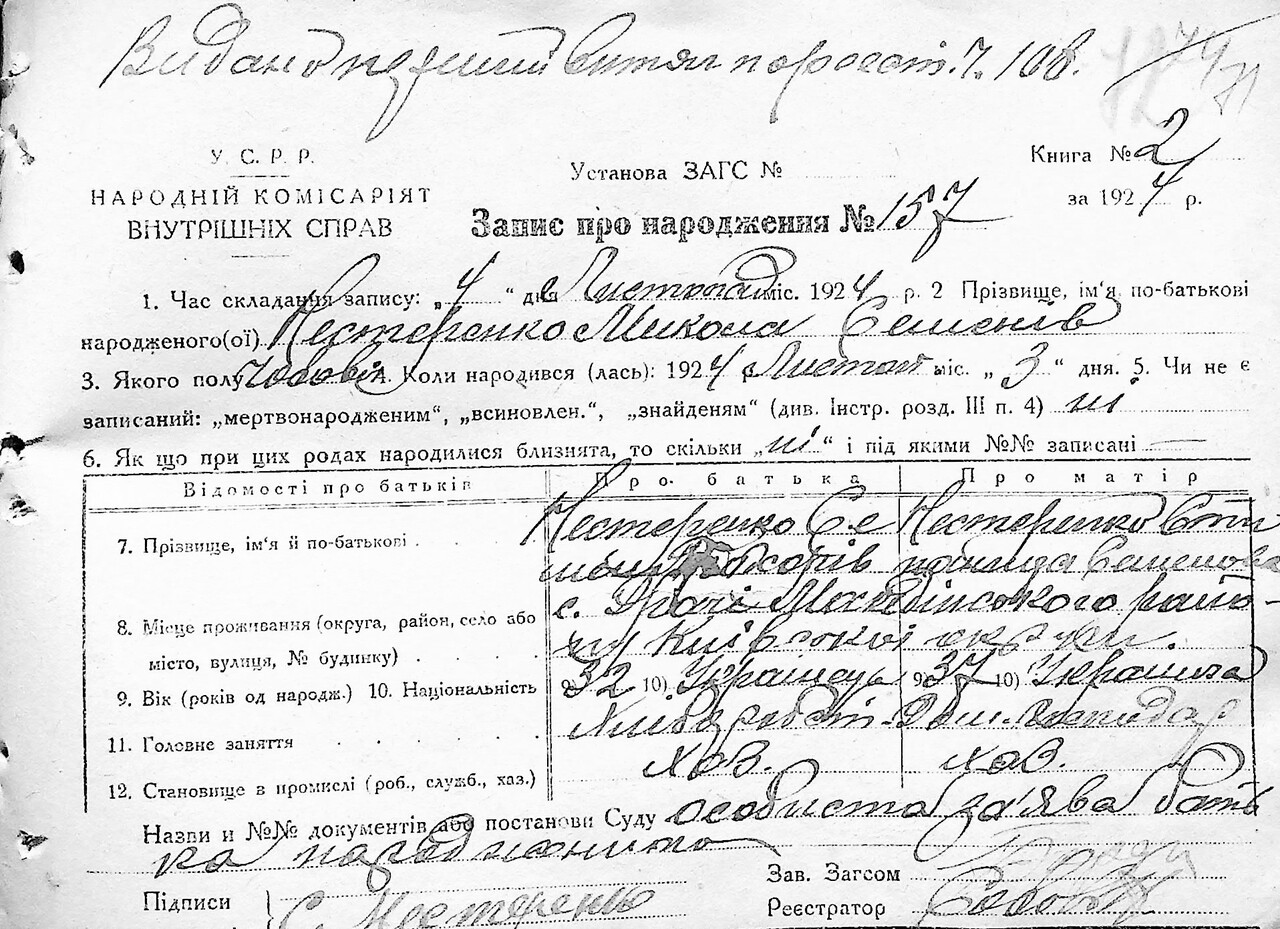 Видано перший витяг по реєст. ч. 108.
У. С. Р. Р.
НАРОДНІЙ КОМІСАРІЯТ
ВНУТРІШНІХ СПРАВ
Установа ЗАГС №
Книга № 2
за 1924 р.
Запис про народження № 157
1. Час складання запису: „4“ дня Листопад міс. 1924 р. 2 Прізвище, ім'я по-батькові
народженого(ої) Нестеренко Микола Семенів
3. Якого полу Чоловіч. Коли народився (лась): 1924 р Листоп міс. „3“ дня. 5. Чи не є
записаний: „мертвонародженим“, „всиновлен.“, „знайденям“ (див. Інстр. розд. III п. 4) ні
6. Як що при цих родах народилися близнята, то скільки „ні“ і під якими №№ записані —
Відомості про батьків Про батька Про матір
7. Прізвище, ім'я й по-батькові Нестеренко Се Нестеренко Сти
мен панида Семенова
8. Місце проживання (округа, район, село або с. району
місто, вулиця, № будинку) Київської округи.
9. Вік (років од народж.) 10. Національність 9) 32 10) Українець 9) 37 10) Українка
11. Головне заняття Хлібороб Дом. господар
12. Становище в промислі (роб., служб., хаз.) хоз. хоз.
Назви и №№ документів або постанови Суду особиста за'ява бать
ка народженого
Підписи С. Нестеренко
Зав. Загсом
Реєстратор